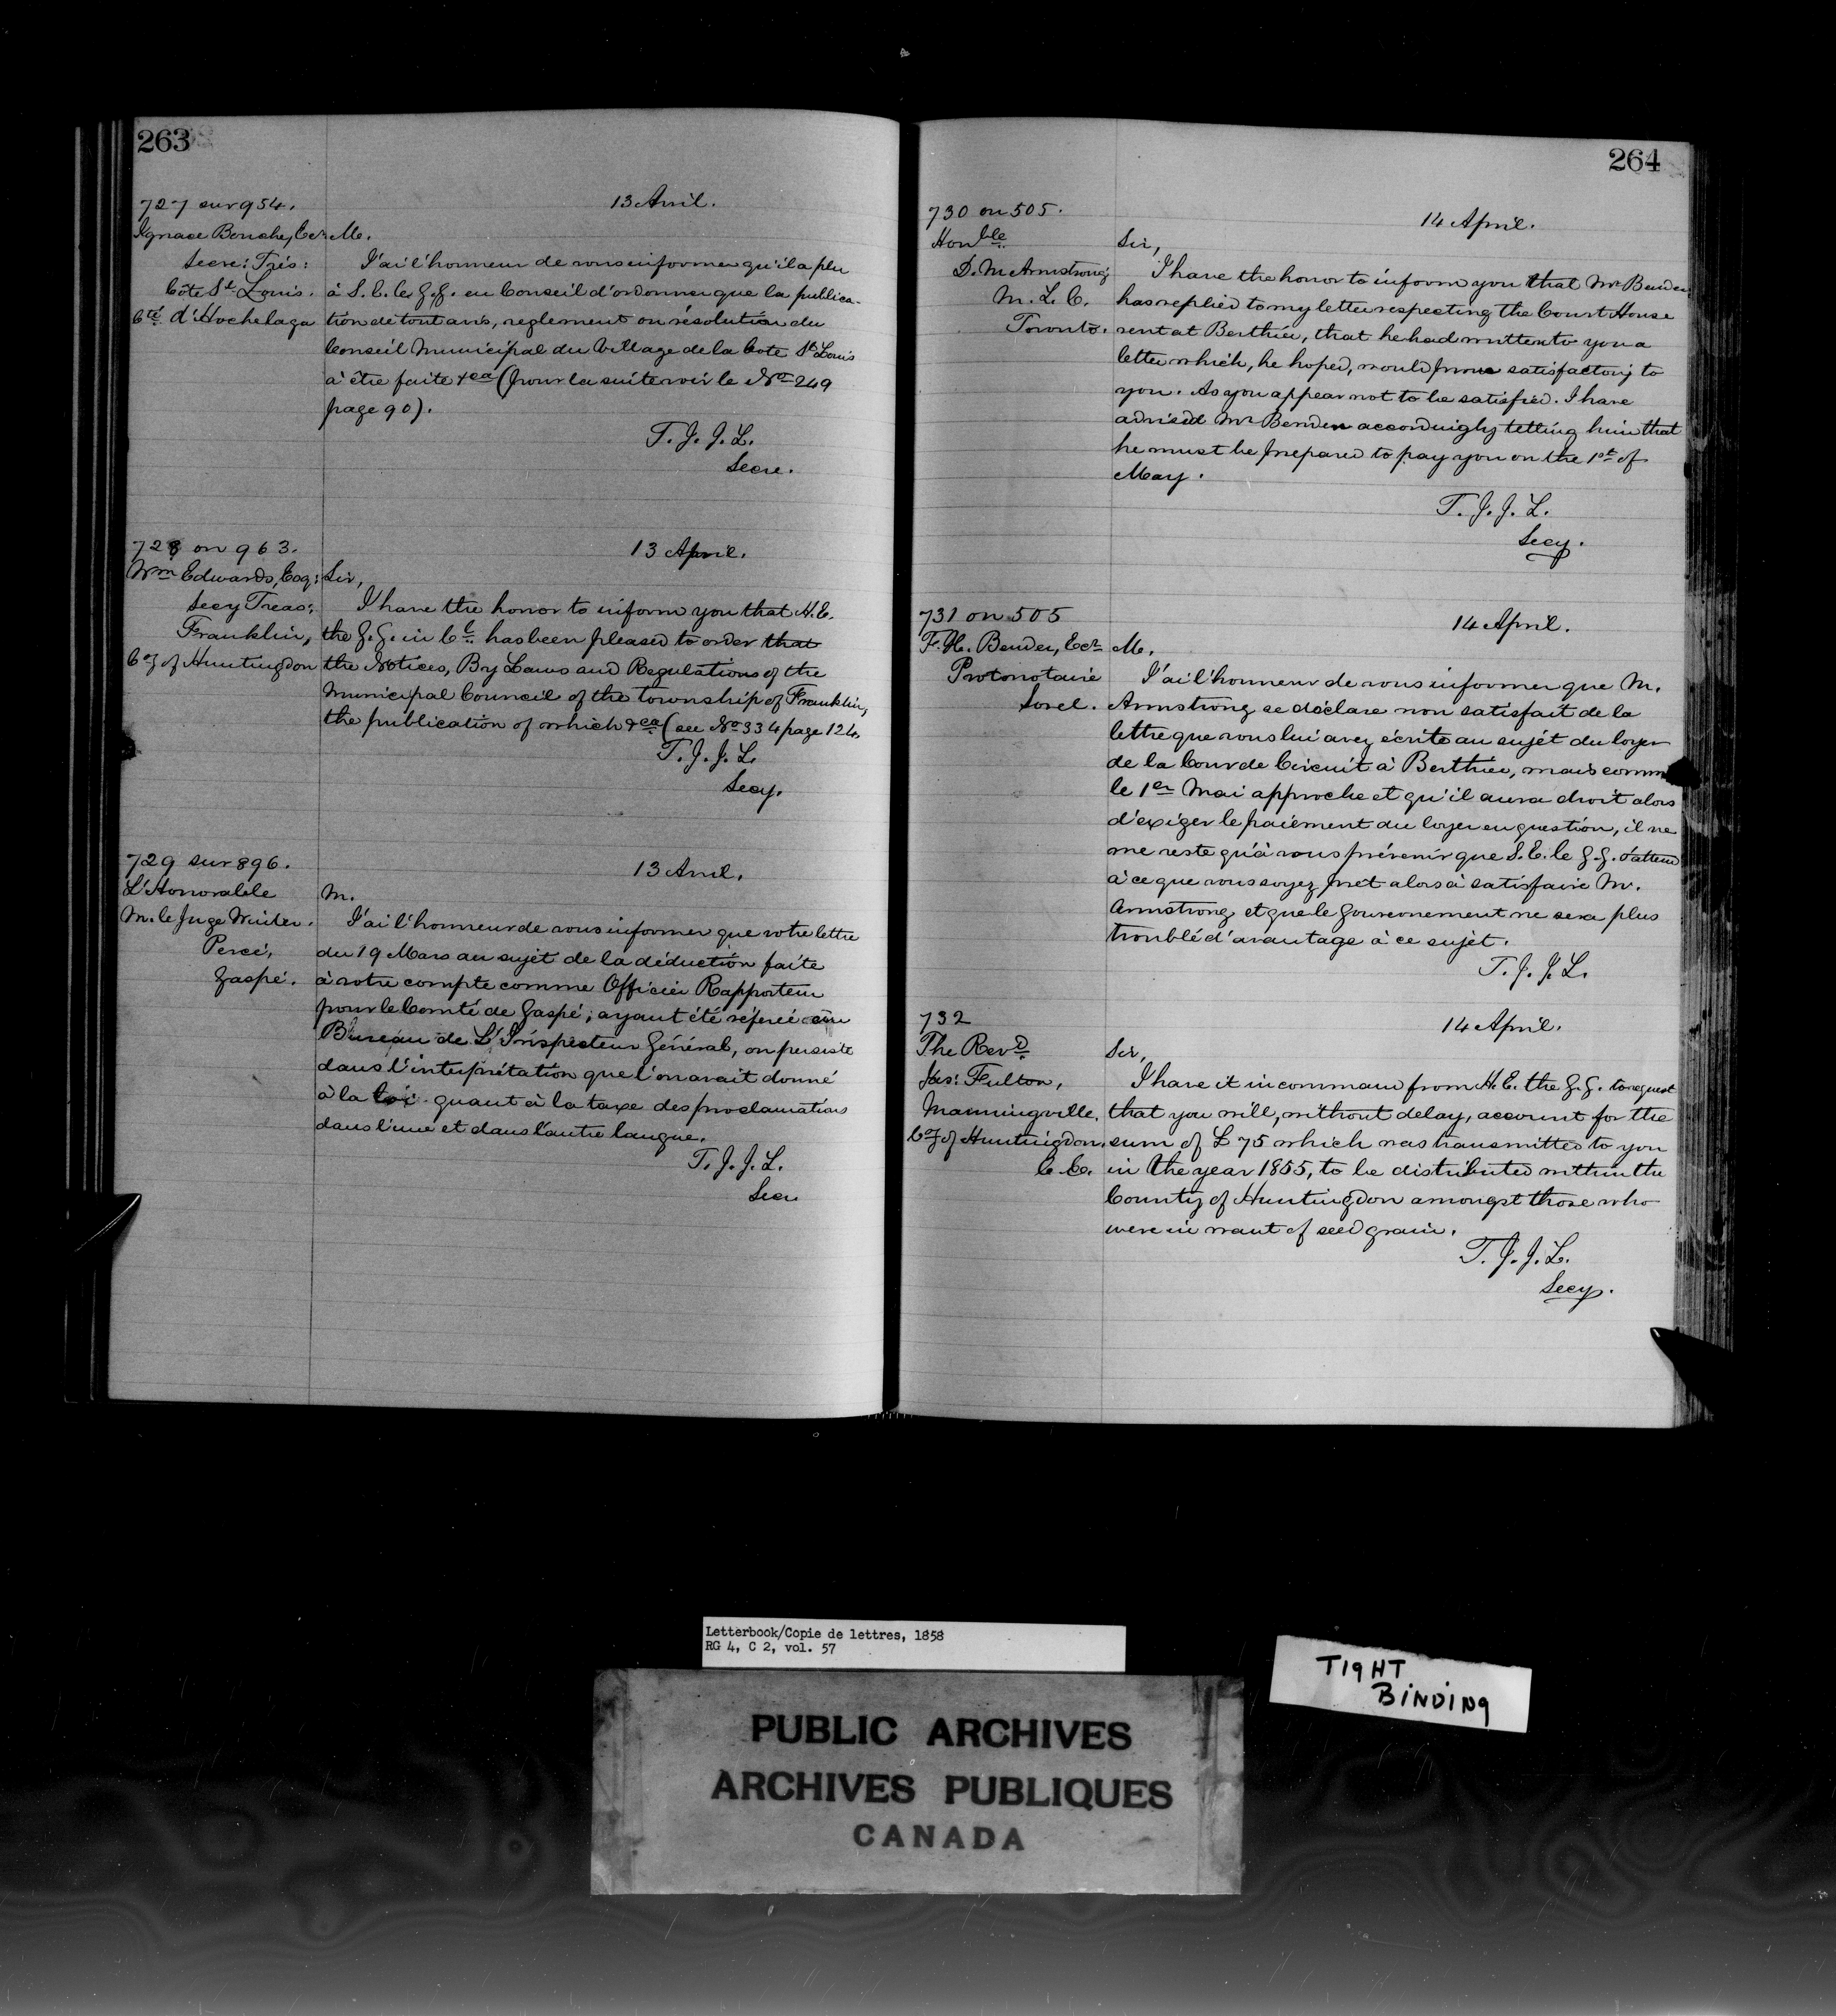 263
727 sur 954.
13 Avril.
Ignace Bouche, Ecr
Secre: Trés:
Côte St Louis.
Cté d'Hochelaga
M.
J'ai l'honneur de vous informer qu'il a plu
à S. E. le G. G. en Conseil d'ordonner que la publica-
tion de tout avis, reglement ou résolution du
Conseil Municipal du Village de la Cote St Louis
à être faite &ca (pour la suite voir le No 249
page 90).
T. J. J. L.
Secre.
728 on 963.
13 April.
Wm Edwards, Esq:
Secy Treas:
Franklin,
Co of Huntingdon
Sir,
I have the honor to inform you that H. E.
the G. G. in Cl. has been pleased to order that
the Notices, By Laws and Regulations of the
Municipal Council of the township of Franklin,
the publication of which &ca (see No 334 page 124.
T. J. J. L.
Secy.
729 sur 896.
13 Avril.
L'Honorable
M. le Juge Winter.
Percé,
Gaspé.
M.
J'ai l'honneur de vous informer que votre lettre
du 19 Mars au sujét de la déduction faite
à votre compte comme Officier Rapporteur
pour le Comté de Gaspé; ayant été réferée au
Bureau de L'Inspecteur Général, on persiste
dans l'interprétation que l'on avait donné
à la loi quant à la taxe des proclamations
dans l'une et dans l'autre langue.
T. J. J. L.
Secre
264
730 on 505.
14 April.
Honble
D. M Armstrong
M. L. C.
Toronto.
Sir,
I have the honor to inform you that Mr Bender
has replied to my letter respecting the Court House
rent at Berthier, that he had written to you a
letter which, he hoped, would prove satisfactory to
you. As you appear not to be satisfied. I have
advised Mr Bender accordingly telling him that
he must be prepared to pay you on the 1st of
May.
T. J. J. L.
Secy.
731 on 505
14 April.
F. H. Bender, Ecr
Protonotaire
Sorel.
M.
J'ai l'honneur de vous informer que M.
Armstrong se déclare non satisfait de la
lettre que vous lui avez écrite au sujét du loyer
de la Cour de Circuit à Berthier, mais comme
le 1er Mai approche et qu'il aura droit alors
d'exiger le paiement du loyer en question, il ne
me reste qu'à vous prévenir que S. E. le G. G. s'attend
à ce que vous soyez prêt alors à satisfaire M.
Armstrong et que le Gouvernement ne sera plus
troublé d'avantage à ce sujét.
T. J. J. L.
732
14 April.
The Revd
Jas: Fulton,
Manningville,
Co of Huntingdon,
C. E.
Sir,
I have it in command from H. E. the G. G. to request
that you will, without delay, account for the
sum of £75 which was transmitted to you
in the year 1855, to be distributed within the
County of Huntingdon amongst those who
were in want of seed grain.
T. J. J. L.
Secy.
Letterbook/Copie de lettres, 1858
RG 4, C 2, vol. 57
TIGHT
BINDING
PUBLIC ARCHIVES
ARCHIVES PUBLIQUES
CANADA